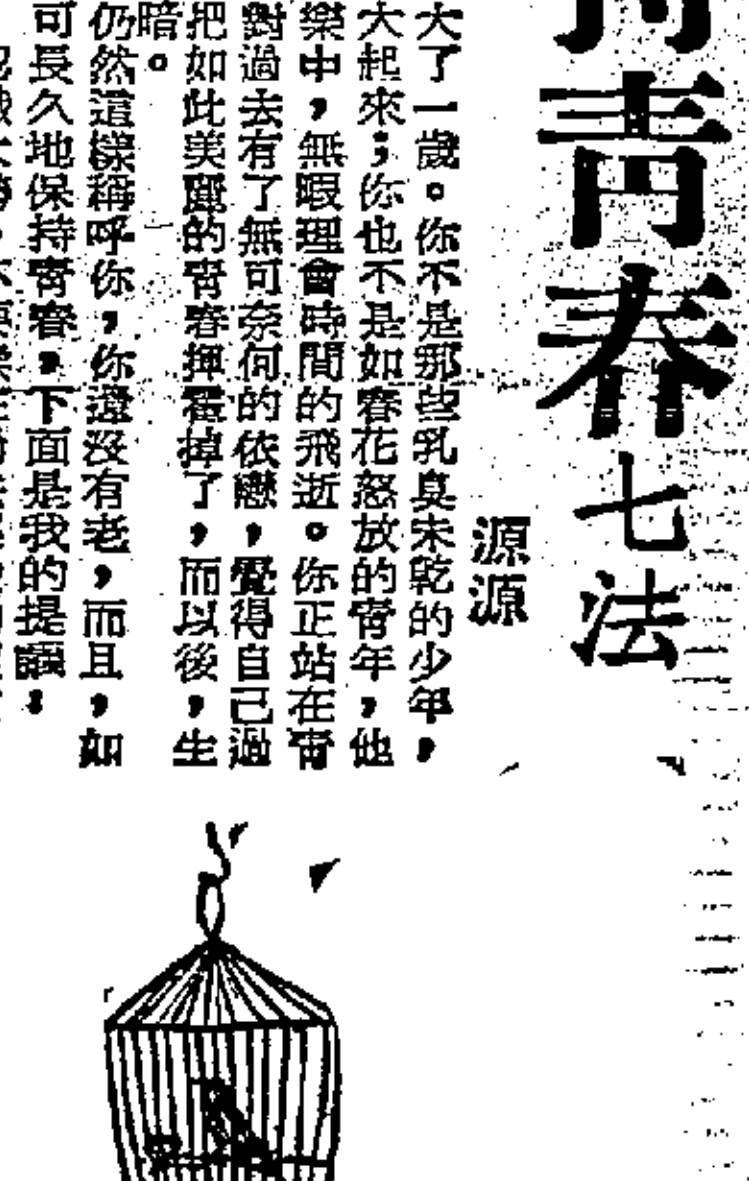 青春七法
源源
大了一歲。你不是那些乳臭未乾的少年，
大起來；你也不是如春花怒放的青年，他
樂中，無暇理會時間的飛逝。你正站在青
對過去有了無可奈何的依戀，覺得自己過
把如此美麗的青春揮霍掉了，而以後，生
暗。
仍然這樣稱呼你，你還沒有老，而且，如
可長久地保持青春，下面是我的提議：